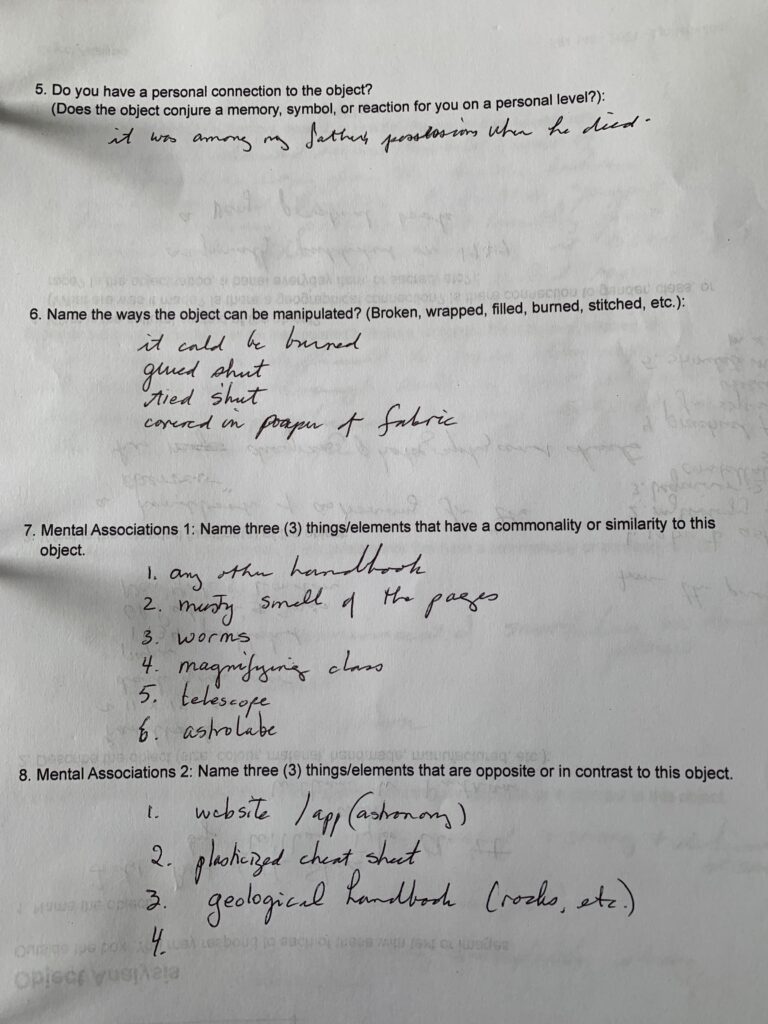 5. Do you have a personal connection to the object?
(Does the object conjure a memory, symbol, or reaction for you on a personal level?):
it was among my father's possessions when he died.
6. Name the ways the object can be manipulated? (Broken, wrapped, filled, burned, stitched, etc.):
it could be burned
glued shut
tied shut
covered in paper + fabric
7. Mental Associations 1: Name three (3) things/elements that have a commonality or similarity to this
object.
1. any other handbook
2. musty smell of the pages
3. worms
4. magnifying class
5. telescope
6. astrolabe
8. Mental Associations 2: Name three (3) things/elements that are opposite or in contrast to this object.
1. website / app (astronomy)
2. plasticized cheat sheet
3. geological handbook (rocks, etc.)
4.
Object Analysis